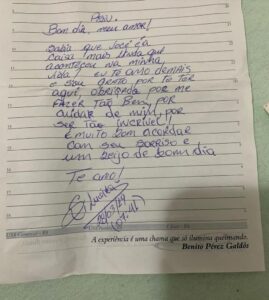 Bom dia, meu amor!
Sabia que você é a
coisa mais linda que
aconteceu na minha
vida! Eu te amo demais
e sou grato por te ter
aqui, obrigada por me
fazer tão bem, por
cuidar de mim, por
ser tão incrível!
É muito bom acordar
com seu sorriso e
um beijo de bom dia
Te amo!
A experiência é uma chama que só ilumina queimando.
Benito Pérez Galdós